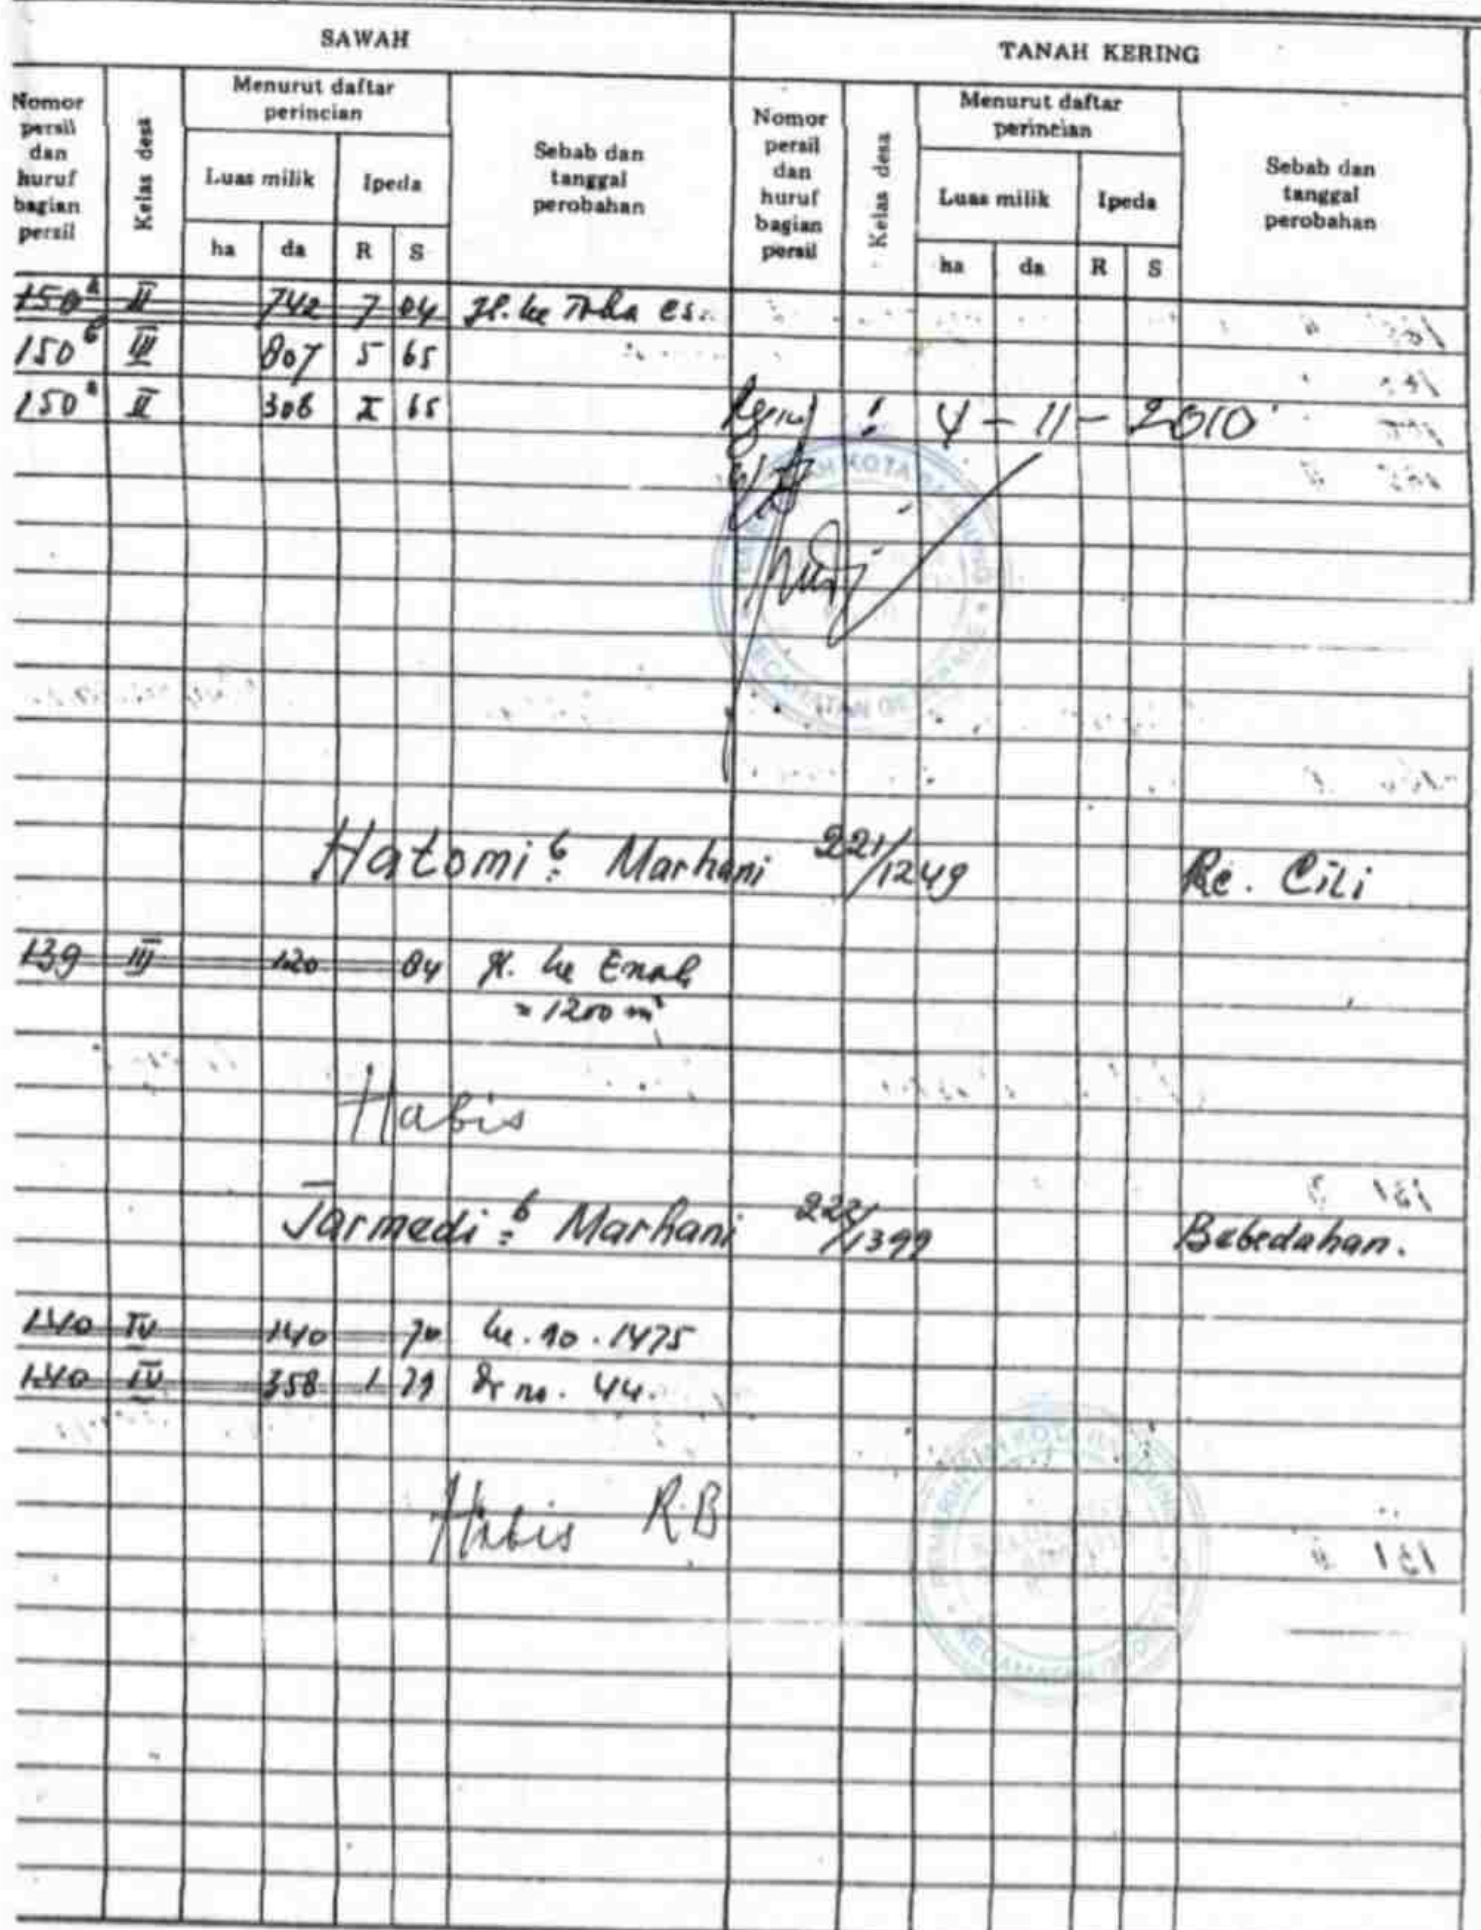 SAWAH
TANAH KERING
Nomor persil dan huruf bagian persil
Kelas desa
Menurut daftar perincian
Luas milik
Ipeda
ha
da
R
S
Sebab dan tanggal perobahan
Nomor persil dan huruf bagian persil
Kelas desa
Menurut daftar perincian
Luas milik
Ipeda
ha
da
R
S
Sebab dan tanggal perobahan
150a II 742 7 04
150b III 807 5 65
150a II 308 65
4 - 11 - 2010
Hatomi b: Marhani 221/1249 Ke. Cili
139 III 120 84 ke Enah
= 1200 m²
Habis
Jarmedi b: Marhani 222/1399 Bebedahan.
140 IV 140 70 ke. no. 1475
140 IV 358 1 79 Dr no. 44.
Habis R.B